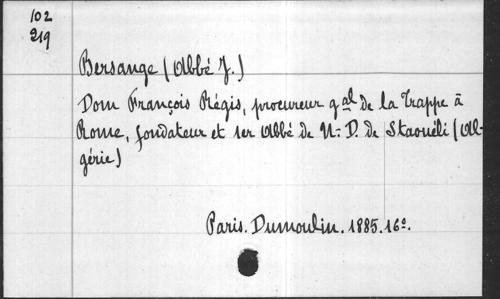 102
219
Bersange (Abbé J.)
Dom François Régis, procureur gal de la Trappe à
Rome, fondateur et 1er Abbé de N.-D. de Staouéli (Al-
gérie)
Paris. Dumoulin. 1885. 16º.